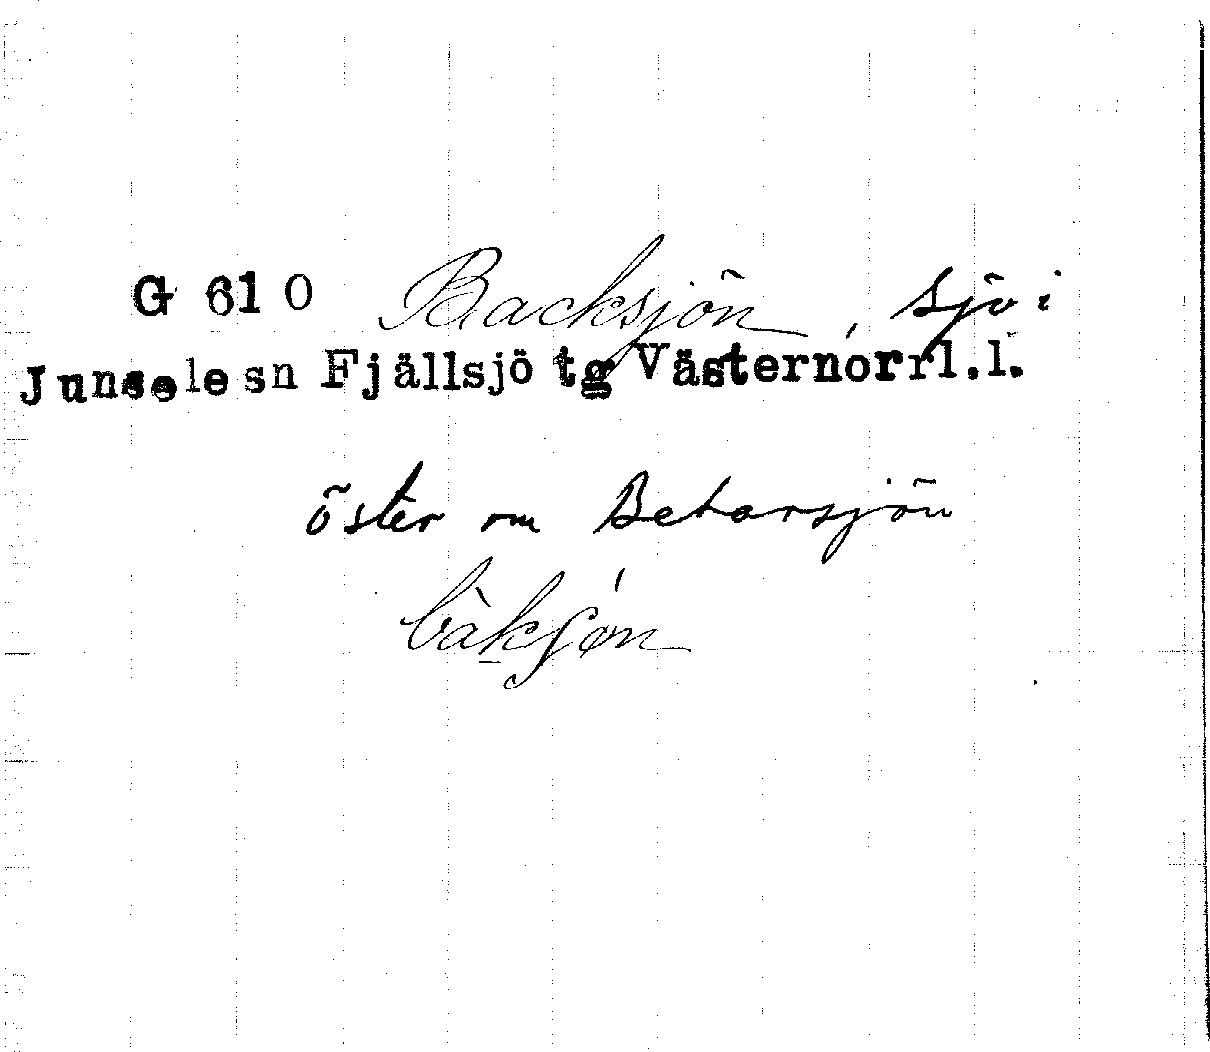 G 610 Backsjön, sjö i
Junselesn Fjällsjö tg Västernorrl.l.
öster om Betarsjön
bàkʃǿn